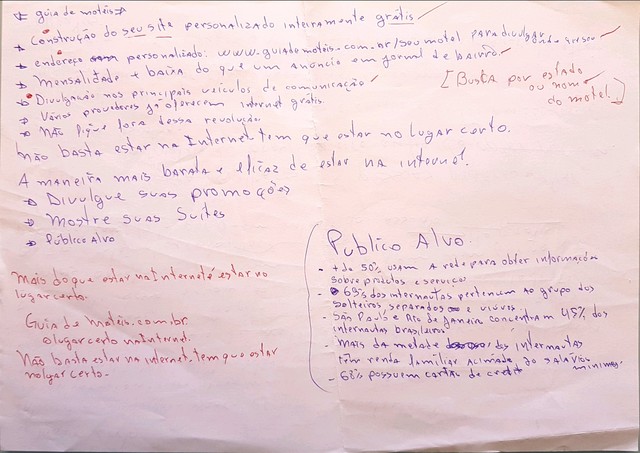 guia de motéis
Construção do seu site personalizado inteiramente grátis
endereço personalizado: www.guiademoteis.com.br/seumotel para divulgar onde quiser
Mensalidade + baixa do que um anúncio em jornal de bairro.
Divulgação nos principais veículos de comunicação
[Busca por estado
ou nome
do motel.]
Vários provedores já oferecem internet grátis.
Não fique fora dessa revolução.
Não basta estar na Internet tem que estar no lugar certo.
A maneira mais barata e eficaz de estar na internet.
Divulgue suas promoções
Mostre suas Suítes
Público Alvo
Mais do que estar na Internet é estar no
lugar certo.
Guia de motéis.com.br
o lugar certo na internet.
Não basta estar na internet. tem que estar
no lugar certo.
Publico Alvo.
- + de 50% usam a rede para obter informações
sobre produtos e serviços
- 69% dos internautas pertencem ao grupo dos
solteiros separados e viúvos.
- São Paulo e Rio de Janeiro concentram 45% dos
internautas brasileiros.
- Mais da metade dos internautas
têm renda familiar acima de salários
minimos.
- 68% possuem cartão de credit